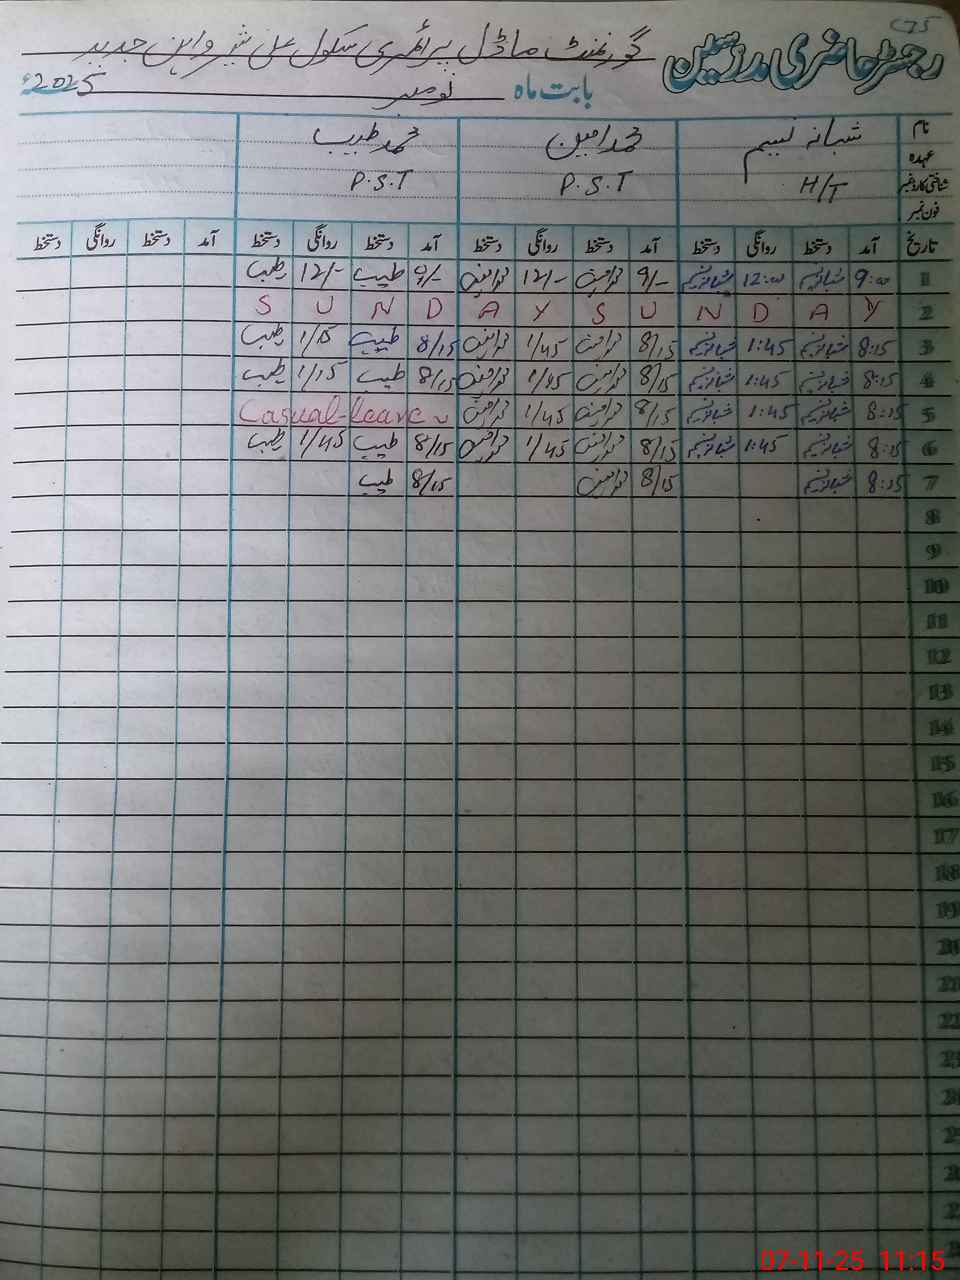 C75
رجسٹر حاضری مدرسین گورنمنٹ ماڈل پرائمری سکول علی شیر واہن جدید
بابت ماہ نومبر 2025ء
نام شبانہ نسیم محمد امین محمد طیب
عہدہ
شناختی کارڈ نمبر H/T P.S.T P.S.T
فون نمبر
تاریخ آمد دستخط روانگی دستخط آمد دستخط روانگی دستخط آمد دستخط روانگی دستخط آمد دستخط روانگی دستخط
1 9:00 شبانہ نسیم 12:00 شبانہ نسیم 9/- محمد امین 12/- محمد امین 9/- طیب 12/- طیب
2 Y A D N U S Y A D N U S
3 8:15 شبانہ نسیم 1:45 شبانہ نسیم 8/15 محمد امین 1/45 محمد امین 8/15 طیب 1/15 طیب
4 8:15 شبانہ نسیم 1:45 شبانہ نسیم 8/15 محمد امین 1/45 محمد امین 8/15 طیب 1/15 طیب
5 8:15 شبانہ نسیم 1:45 شبانہ نسیم 8/15 محمد امین 1/45 محمد امین Casual-leave
6 8:15 شبانہ نسیم 1:45 شبانہ نسیم 8/15 محمد امین 1/45 محمد امین 8/15 طیب 1/45 طیب
7 8:15 شبانہ نسیم 8/15 محمد امین 8/15 طیب
8
9
10
11
12
13
14
15
16
17
18
19
20
21
22
23
24
25
26
27
07-11-25 11:15